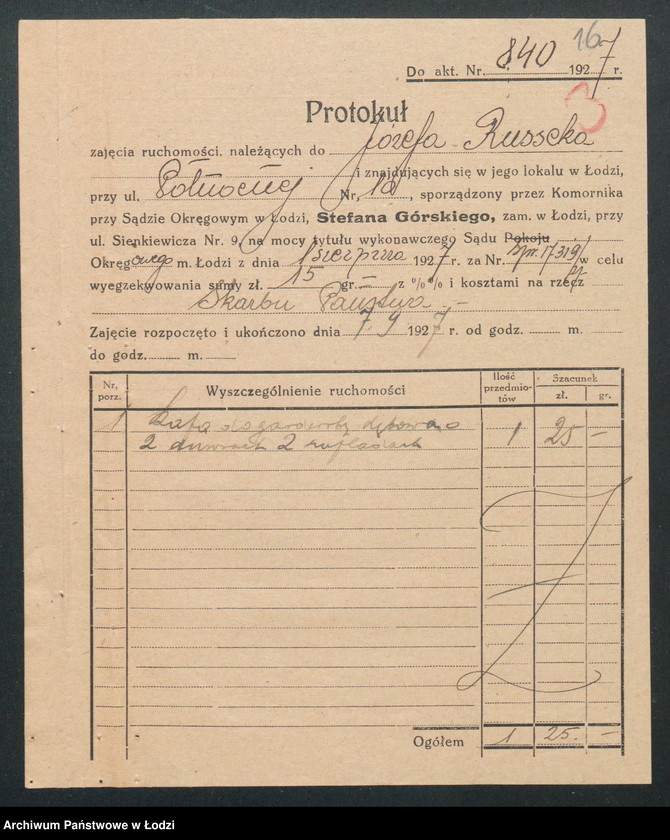 16
Do akt. Nr. 840 1927 r.
3
Protokuł
zajęcia ruchomości, należących do Józefa Russeka
i znajdujących się w jego lokalu w Łodzi,
przy ul. Północnej Nr, 12, sporządzony przez Komornika
przy Sądzie Okręgowym w Łodzi, Stefana Górskiego, zam. w Łodzi, przy
ul. Sienkiewicza Nr. 9, na mocy tytułu wykonawczego Sądu Pokoju
Okręgowego m. Łodzi z dnia 1 sierpnia 1927 r. za Nr. w celu
wyegzekwowania sumy zł. 15 gr. — z %% i kosztami na rzecz
Skarbu Państwa —
Zajęcie rozpoczęto i ukończono dnia 7.9 1927 r. od godz. m.
do godz. m.
Nr. porz. Wyszczególnienie ruchomości Ilość przedmiotów Szacunek zł. gr.
1 do garderoby dębowa o 1 25 —
2 drzwiach 2 szufladach
Ogółem 1 25. —
Archiwum Państwowe w Łodzi